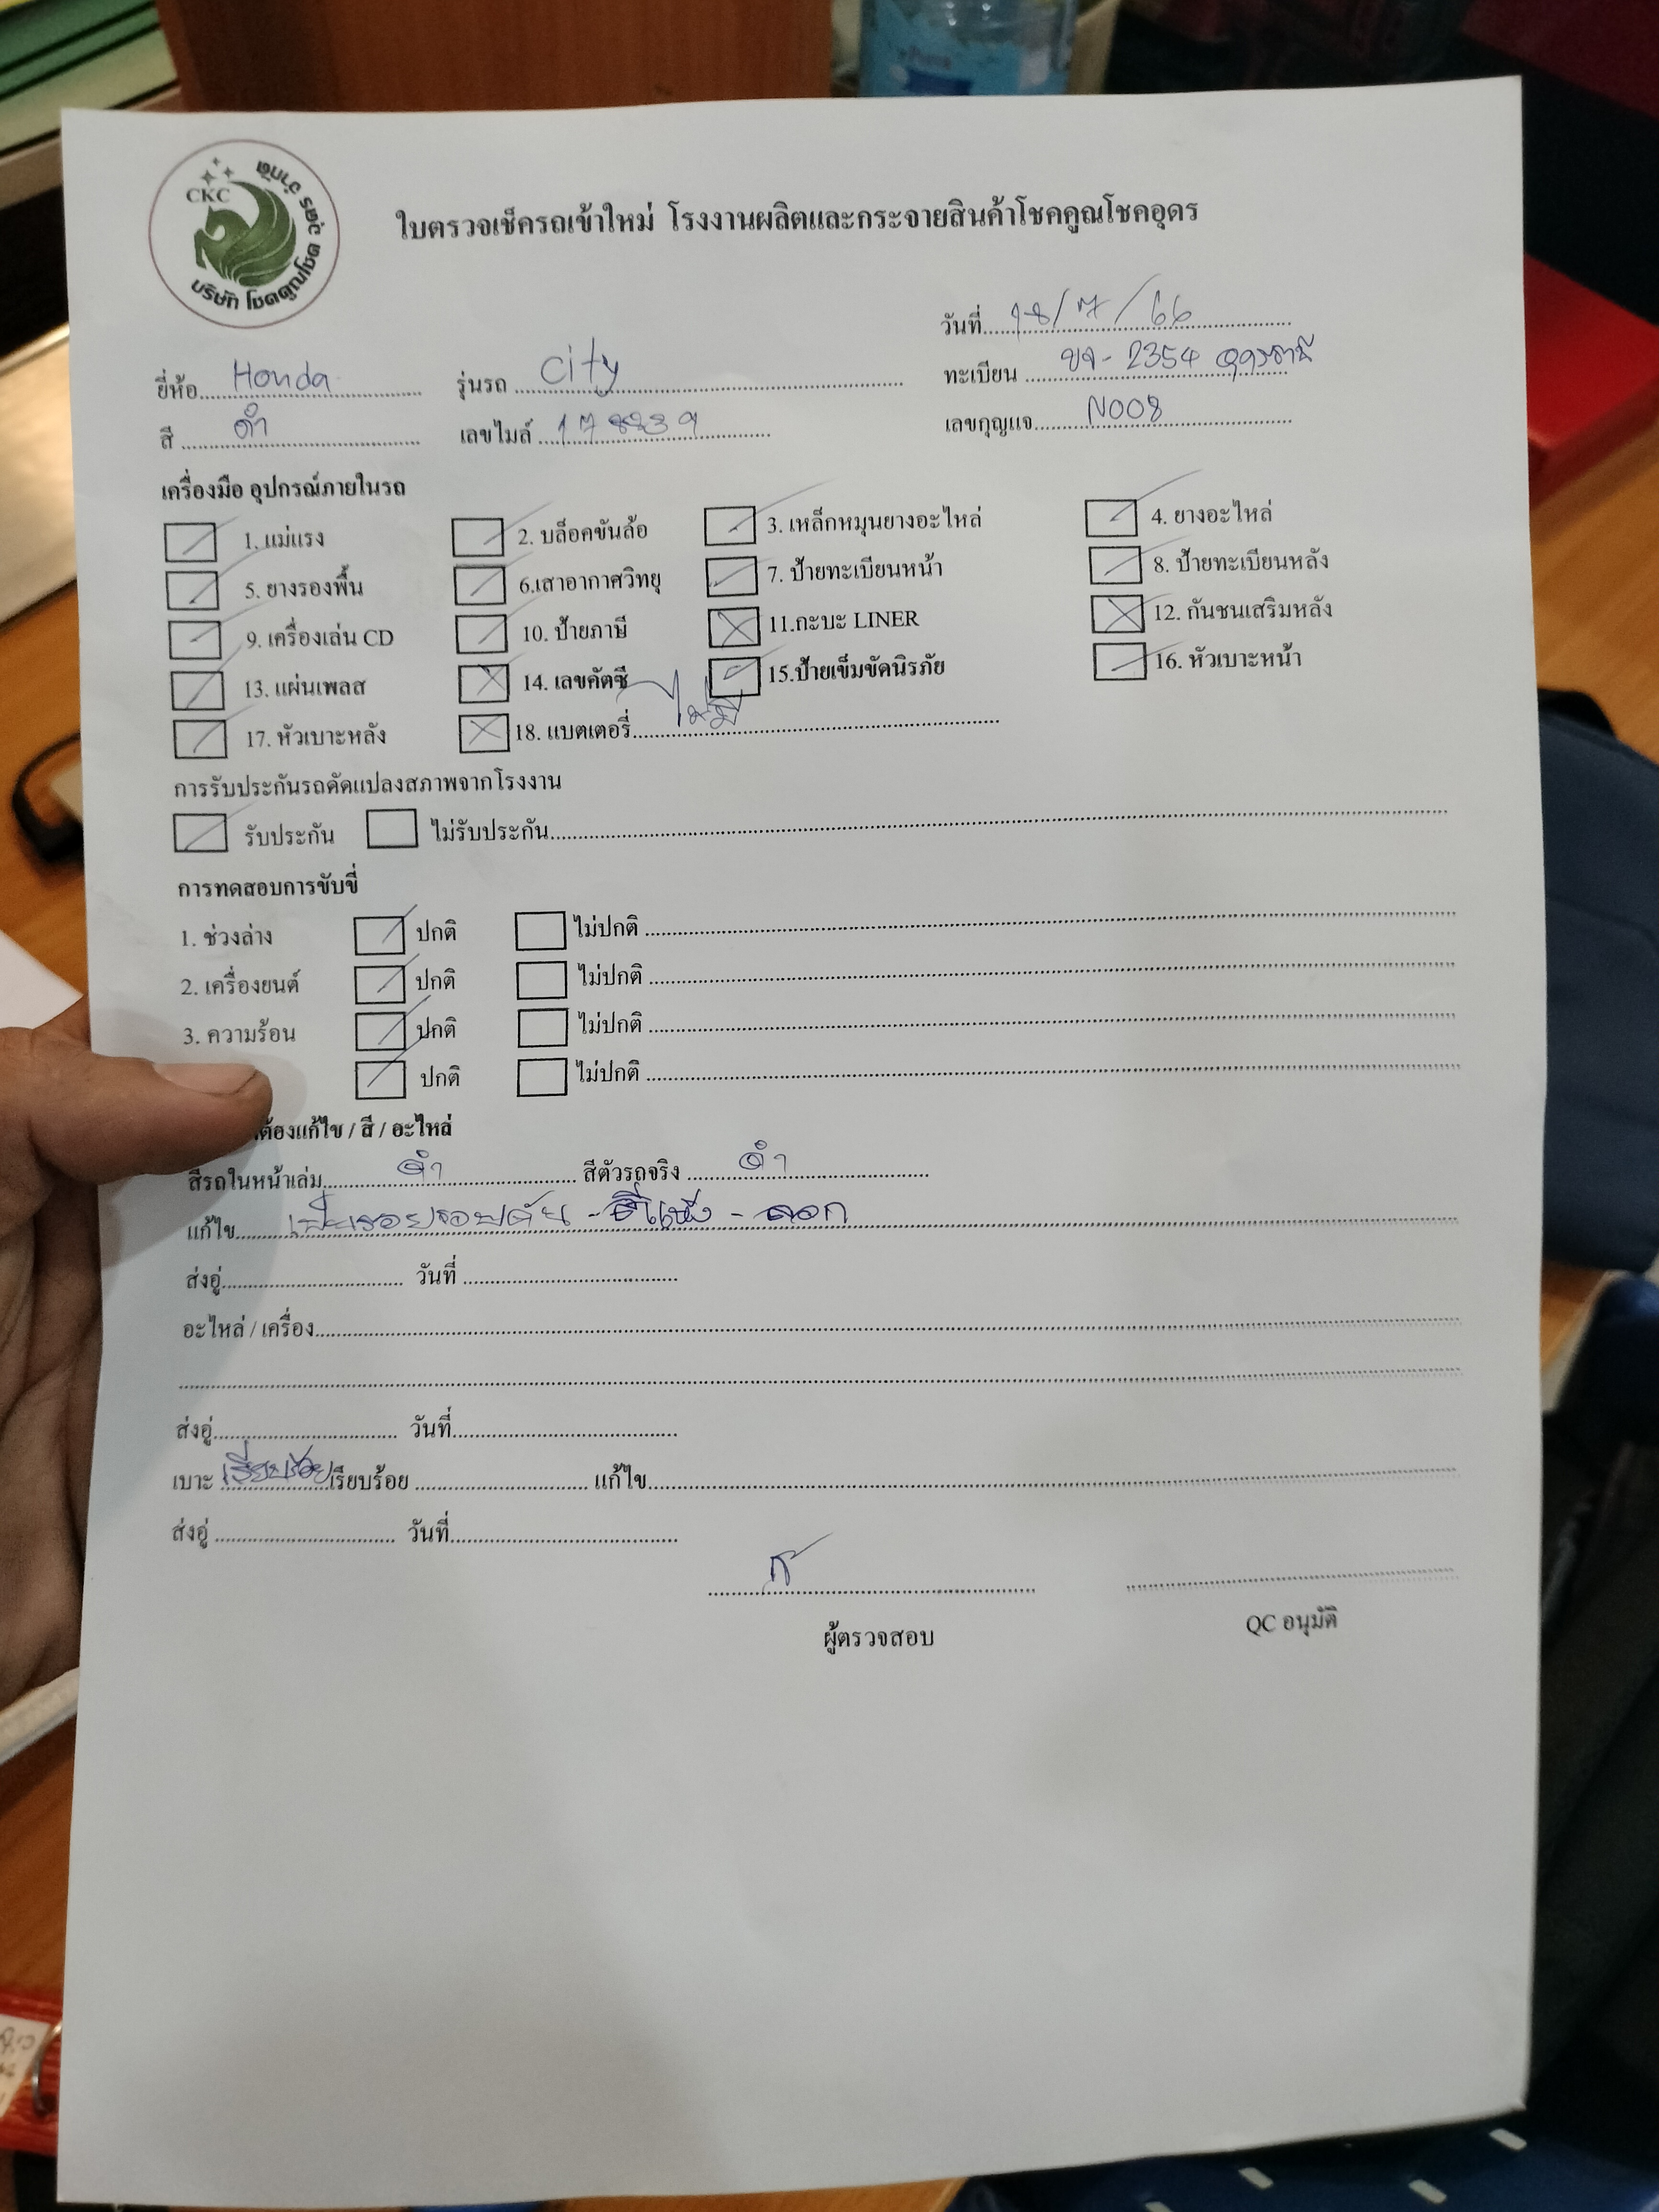 CKC
บริษัท โชคคูณโชค คาร์ จำกัด
ใบตรวจเช็ครถเข้าใหม่ โรงงานผลิตและกระจายสินค้าโชคคูณโชคอุดร
วันที่ 18/7/66
ยี่ห้อ Honda รุ่นรถ city ทะเบียน ขจ-2354 อุดรธานี
สี ดำ เลขไมล์ 178239 เลขกุญแจ N008
เครื่องมือ อุปกรณ์ภายในรถ
1. แม่แรง 2. บล็อคขันล้อ 3. เหล็กหมุนยางอะไหล่ 4. ยางอะไหล่
5. ยางรองพื้น 6.เสาอากาศวิทยุ 7. ป้ายทะเบียนหน้า 8. ป้ายทะเบียนหลัง
9. เครื่องเล่น CD 10. ป้ายภาษี 11.กะบะ LINER 12. กันชนเสริมหลัง
13. แผ่นเพลส 14. เลขคัตซี 15.ป้ายเข็มขัดนิรภัย 16. หัวเบาะหน้า
17. หัวเบาะหลัง 18. แบตเตอรี่ ไม่มี
การรับประกันรถดัดแปลงสภาพจากโรงงาน
รับประกัน ไม่รับประกัน
การทดสอบการขับขี่
1. ช่วงล่าง ปกติ ไม่ปกติ
2. เครื่องยนต์ ปกติ ไม่ปกติ
3. ความร้อน ปกติ ไม่ปกติ
ปกติ ไม่ปกติ
ต้องแก้ไข / สี / อะไหล่
สีรถในหน้าเล่ม ดำ สีตัวรถจริง ดำ
แก้ไข
ส่งอู่ วันที่
อะไหล่ / เครื่อง
ส่งอู่ วันที่
เบาะ เรียบร้อย เรียบร้อย แก้ไข
ส่งอู่ วันที่
ผู้ตรวจสอบ QC อนุมัติ